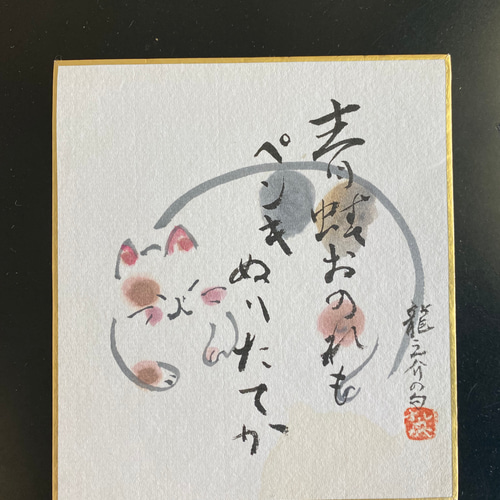 青蛙おのれも
ペンキ
ぬりたてか
龍之介の句